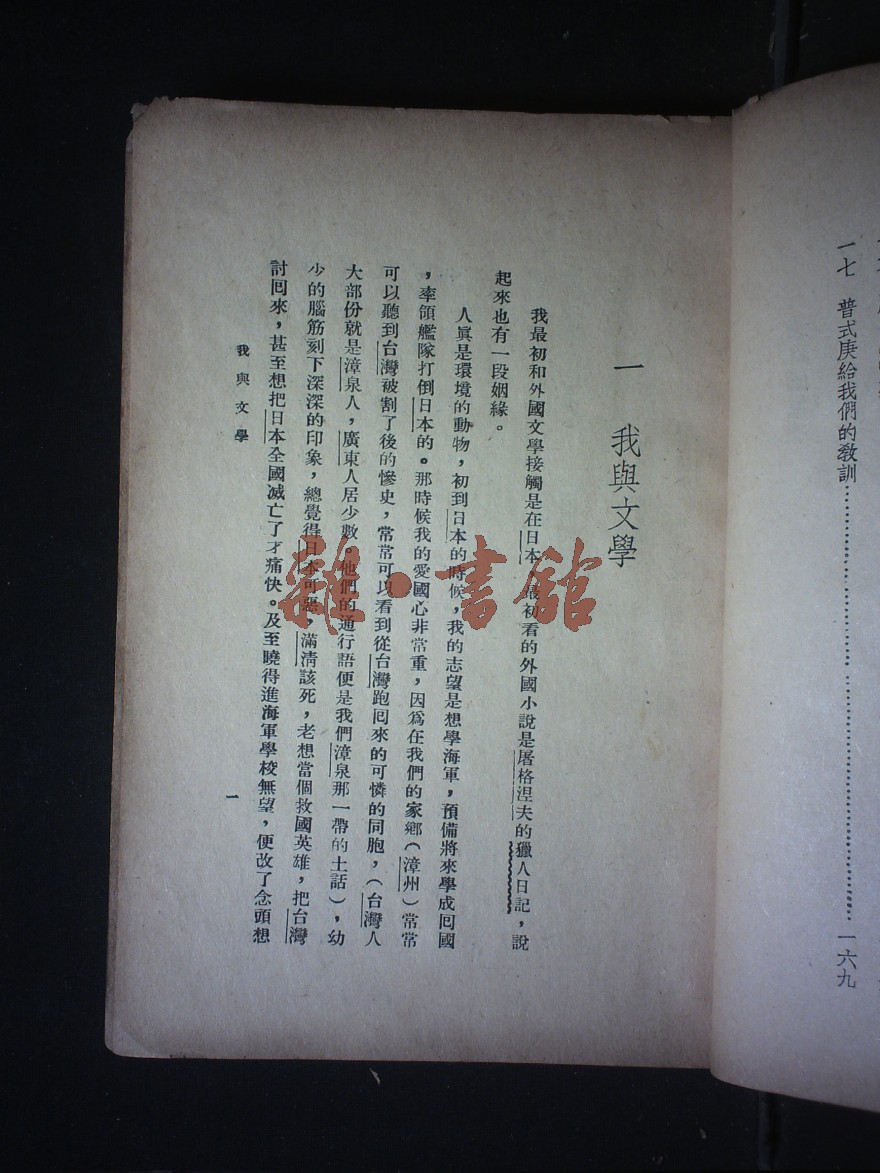 一七　普式庚給我們的敎訓……………………………一六九
一　我與文學
我最初和外國文學接觸是在日本，最初看的外國小說是屠格涅夫的獵人日記，說
起來也有一段姻緣。
人眞是環境的動物，初到日本的時候，我的志望是想學海軍，預備將來學成囘國
，率領艦隊打倒日本的。那時候我的愛國心非常重，因爲在我們的家鄉（漳州）常常
可以聽到台灣被割了後的慘史，常常可以看到從台灣跑囘來的可憐的同胞，（台灣人
大部份就是漳泉人，廣東人居少數，他們的通行語便是我們漳泉那一帶的土話），幼
少的腦筋刻下深深的印象，總覺得日本可惡，滿淸該死，老想當個救國英雄，把台灣
討囘來，甚至想把日本全國滅亡了才痛快。及至曉得進海軍學校無望，便改了念頭想
我與文學
一
雜·書館